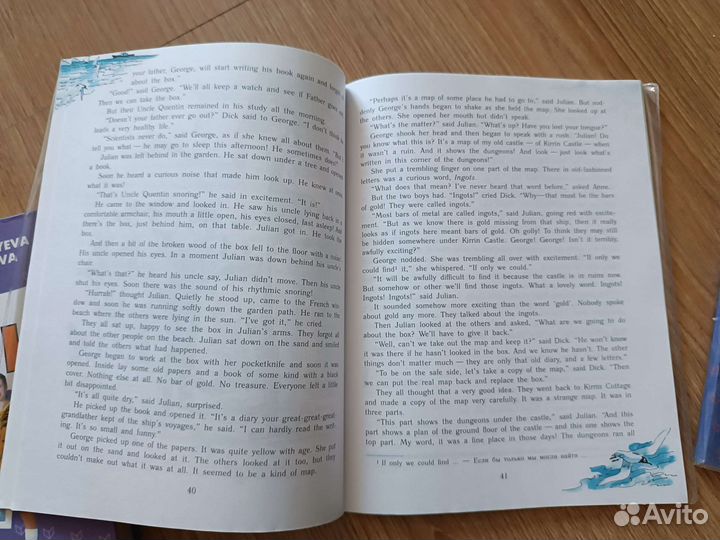 your father, George, will start writing his book again and forget
about the box."
"Good!" said George. "We'll all keep a watch and see if Father goes out.
Then we can take the box."
But their Uncle Quentin remained in his study all the morning.
"Doesn't your father ever go out?" Dick said to George. "I don't think he
leads a very healthy life."
"Scientists never do," said George, as if she knew all about them. "But I
tell you what — he may go to sleep this afternoon! He sometimes does!"
Julian was left behind in the garden. He sat down under a tree and opened
a book.
Soon he heard a curious noise that made him look up. He knew at once
what it was!
"That's Uncle Quentin snoring!" he said in excitement. "It is!"
He came to the window and looked in. He saw his uncle lying back in a
comfortable armchair, his mouth a little open, his eyes closed, fast asleep! And
there's the box, just behind him, on that table. Julian got in. He took the
box.
And then a bit of the broken wood of the box fell to the floor with a noise.
His uncle opened his eyes. In a moment Julian was down behind his uncle's
chair.
"What's that?" he heard his uncle say. Julian didn't move. Then his uncle
shut his eyes. Soon there was the sound of his rhythmic snoring!
"Hurrah!" thought Julian. Quietly he stood up, came to the French win-
dow and soon he was running softly down the garden path. He ran to the
beach where the others were lying in the sun. "I've got it," he cried.
They all sat up, happy to see the box in Julian's arms. They forgot all
about the other people on the beach. Julian sat down on the sand and smiled
and told the others what had happened.
George began to work at the box with her pocketknife and soon it was
opened. Inside lay some old papers and a book of some kind with a black
cover. Nothing else at all. No bar of gold. No treasure. Everyone felt a little
bit disappointed.
"It's all quite dry," said Julian, surprised.
He picked up the book and opened it. "It's a diary your great-great-great-
grandfather kept of the ship's voyages," he said. "I can hardly read the writ-
ing. It's so small and funny."
George picked up one of the papers. It was quite yellow with age. She put
it out on the sand and looked at it. The others looked at it too, but they
couldn't make out what it was at all. It seemed to be a kind of map.
40
"Perhaps it's a map of some place he had to go to," said Julian. But sud-
denly George's hands began to shake as she held the map. She looked up at
the others. She opened her mouth but didn't speak.
"What's the matter?" said Julian. "What's up? Have you lost your tongue?"
George shook her head and then began to speak with a rush. "Julian! Do
you know what this is? It's a map of my old castle — of Kirrin Castle — when
it wasn't a ruin. And it shows the dungeons! And look — just look what's
written in this corner of the dungeons!"
She put a trembling finger on one part of the map. There in old-fashioned
letters was a curious word, Ingots.
"What does that mean? I've never heard that word before," asked Anne.
But the two boys had. "Ingots!" cried Dick. "Why—that must be the bars
of gold! They were called ingots."
"Most bars of metal are called ingots," said Julian, going red with excite-
ment. "But as we know there is gold missing from that ship, then it really
looks as if ingots here meant bars of gold. Oh golly! To think they may still
be hidden somewhere under Kirrin Castle. George! George! Isn't it terribly,
awfully exciting?"
George nodded. She was trembling all over with excitement. "If only we
could find¹ it," she whispered. "If only we could."
"It will be awfully difficult to find it because the castle is in ruins now.
But somehow or other we'll find those ingots. What a lovely word. Ingots!
Ingots! Ingots!" said Julian.
It sounded somehow more exciting than the word 'gold'. Nobody spoke
about gold any more. They talked about the ingots.
Then Julian looked at the others and asked, "What are we going to do
about the box? We'll have to give it back."
"Well, can't we take out the map and keep it?" said Dick. "He won't know
it was there if he hasn't looked in the box. And we know he hasn't. The other
things don't matter much — they are only that old diary, and a few letters."
"To be on the safe side, let's take a copy of the map," said Dick. "Then
we can put the real map back and replace the box."
They all thought that a very good idea. They went back to Kirrin Cottage
and made a copy of the map very carefully. It was a strange map. It was in
three parts.
"This part shows the dungeons under the castle," said Julian. "And this
shows a plan of the ground floor of the castle — and this one shows the
top part. My word, it was a fine place in those days! The dungeons ran all
¹ If only we could find ... — Если бы только мы могли найти ...
41
YEVA
VA
Avito